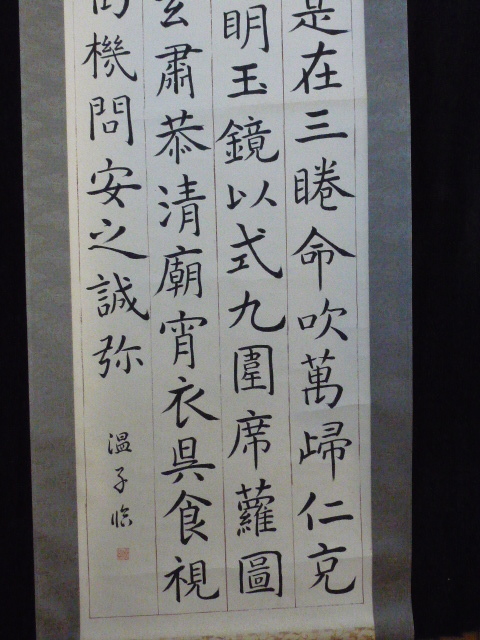 是在三睠命吹萬歸仁克
明玉鏡以式九圍席蘿圖
玄肅恭清廟宵衣旲食視
機問安之誠弥
温子臨